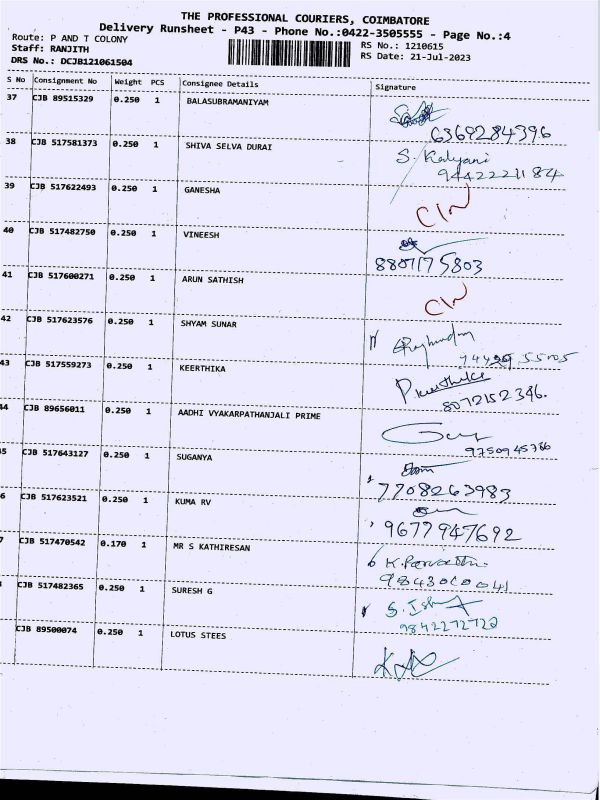 THE PROFESSIONAL COURIERS, COIMBATORE
Delivery Runsheet - P43 - Phone No.:0422-3505555 - Page No.:4
Route: P AND T COLONY
Staff: RANJITH
DRS No.: DCJB121061504
RS No.: 1210615
RS Date: 21-Jul-2023
S No Consignment No Weight PCS Consignee Details Signature
37 CJB 89515329 0.250 1 BALASUBRAMANIYAM
6369284396
38 CJB 517581373 0.250 1 SHIVA SELVA DURAI S. Kalyani
9442221184
39 CJB 517622493 0.250 1 GANESHA
40 CJB 517482750 0.250 1 VINEESH
8807175803
41 CJB 517600271 0.250 1 ARUN SATHISH
42 CJB 517623576 0.250 1 SHYAM SUNAR
43 CJB 517559273 0.250 1 KEERTHIKA P. keerthika
8072152346.
44 CJB 89656011 0.250 1 AADHI VYAKARPATHANJALI PRIME
9750945786
5 CJB 517643127 0.250 1 SUGANYA
7708263983
6 CJB 517623521 0.250 1 KUMA RV
9677947692
7 CJB 517470542 0.170 1 MR S KATHIRESAN
9843060041
CJB 517482365 0.250 1 SURESH G
9842272722
CJB 89500074 0.250 1 LOTUS STEES